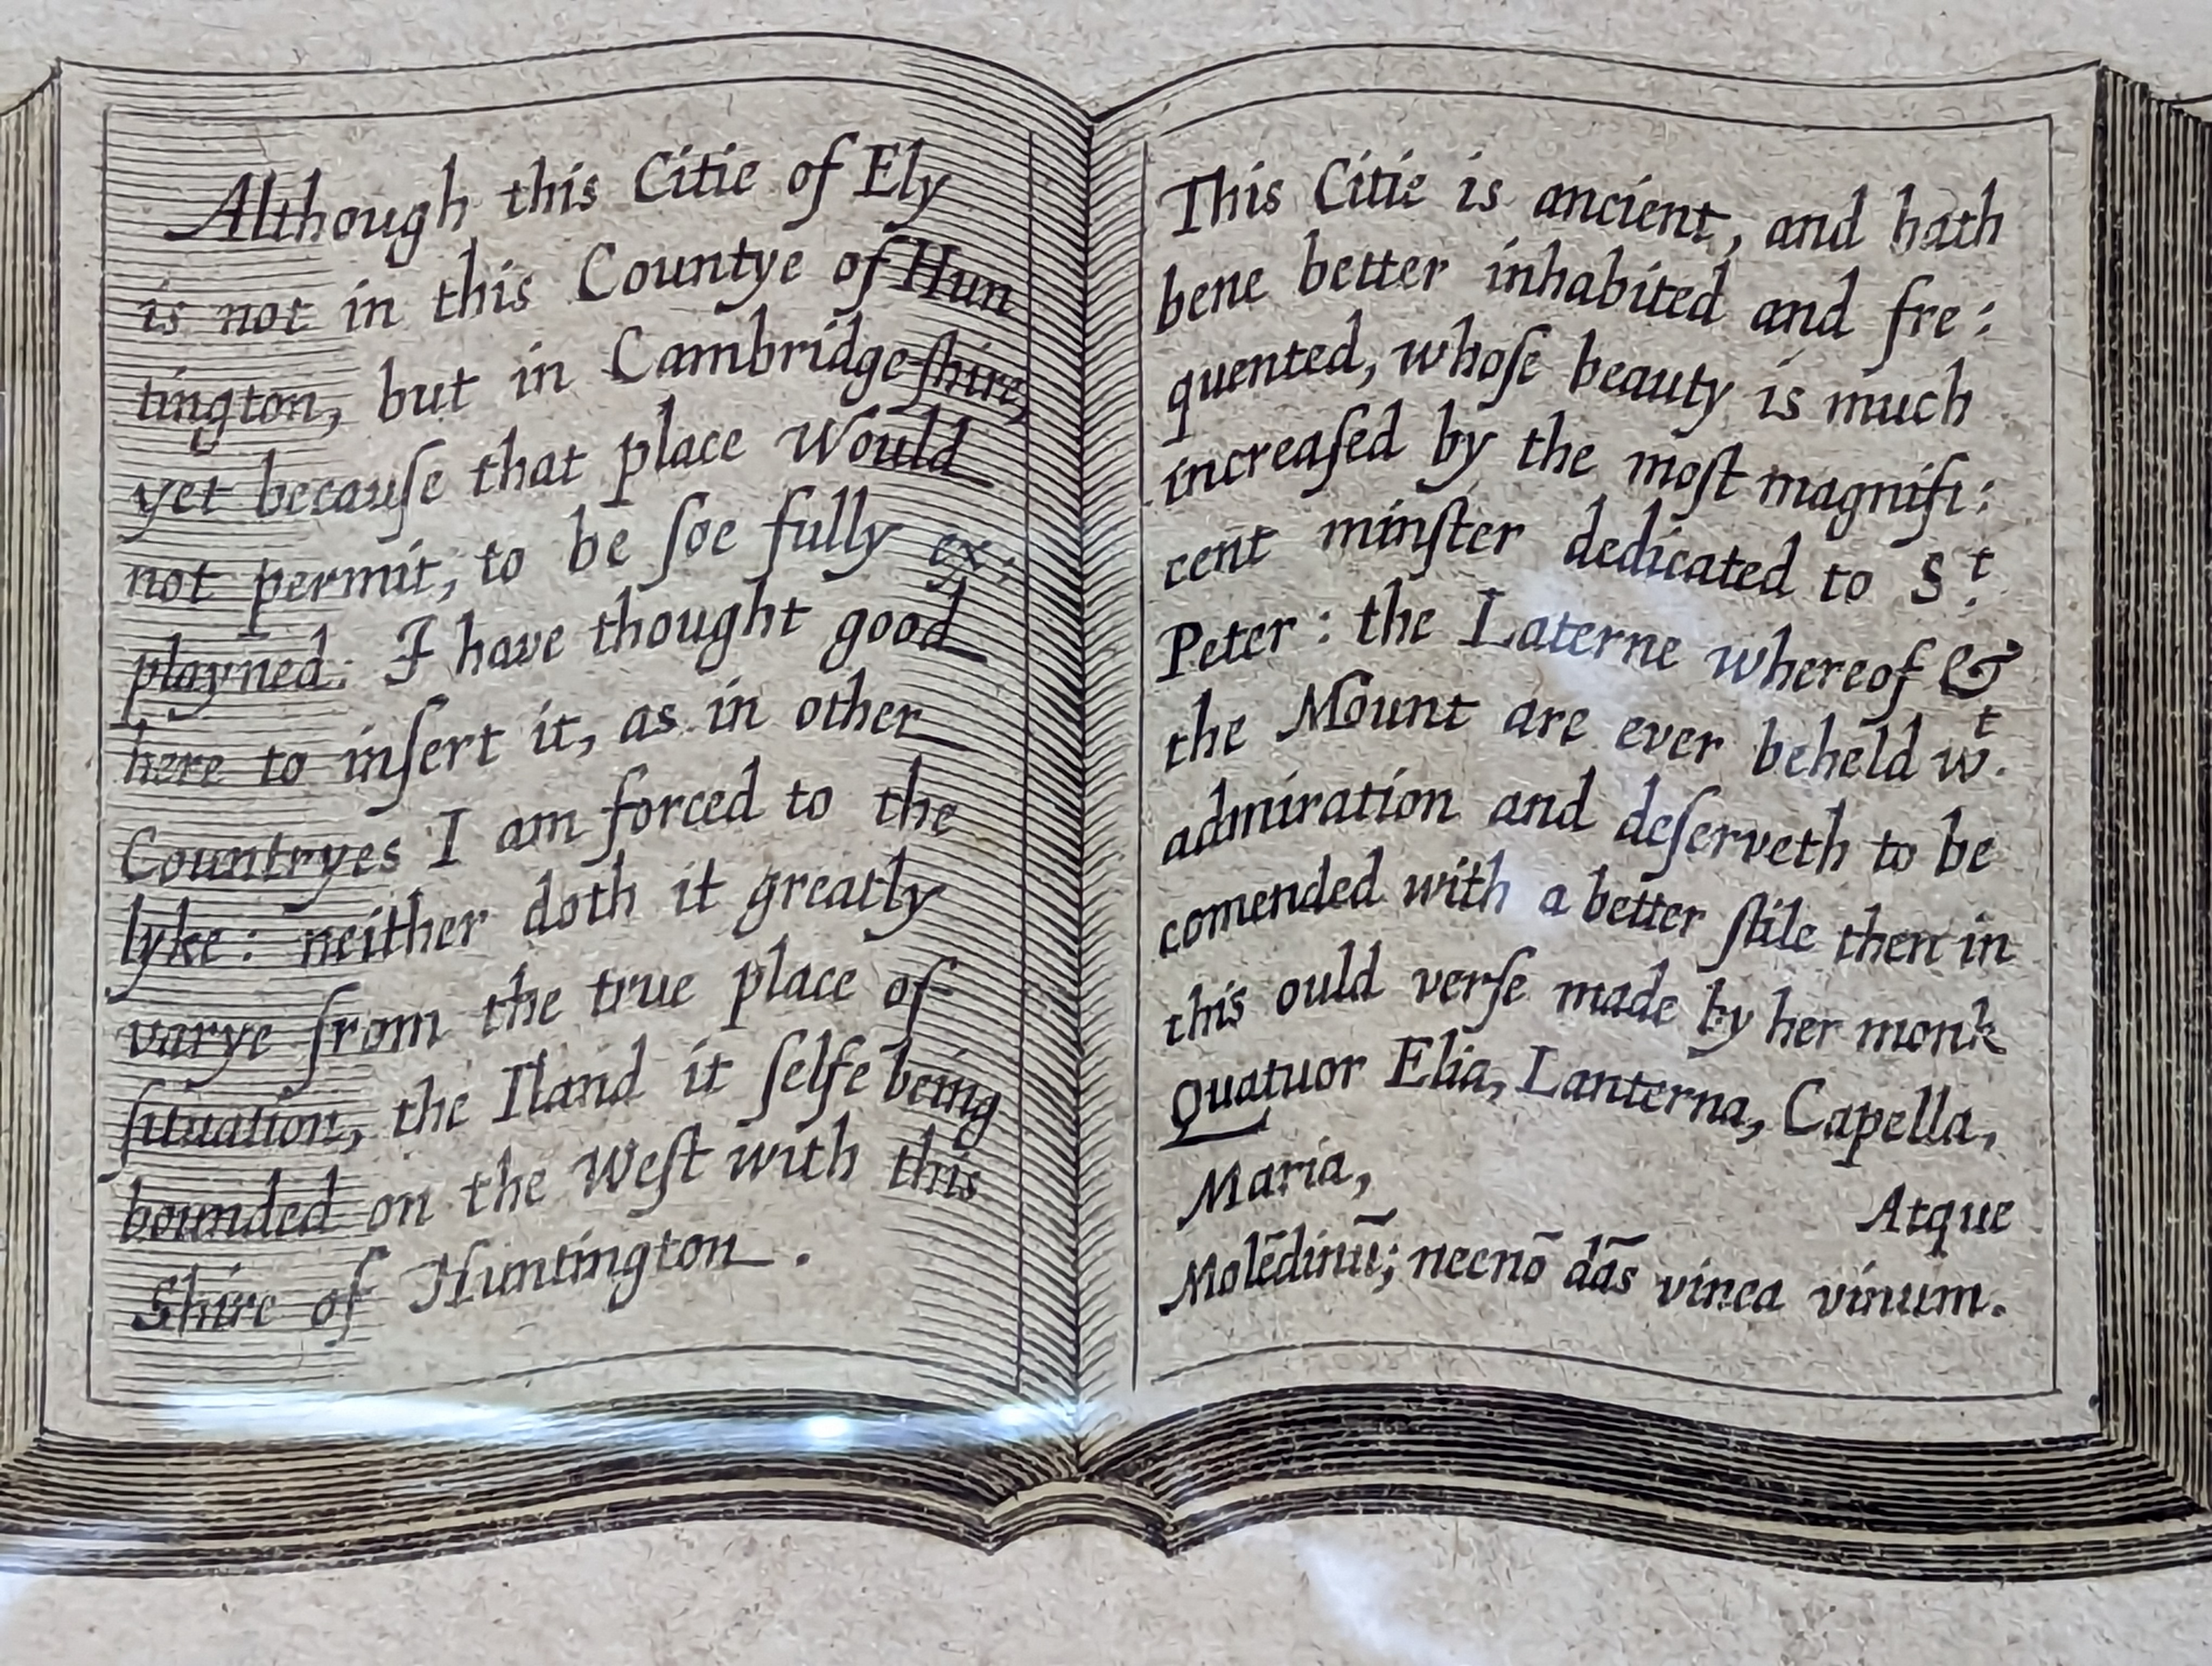 Although this Citie of Ely
is not in this Countye of Hun
tington, but in Cambridgeſhire,
yet becauſe that place Would
not permit, to be ſoe fully ex:
playned: I have thought good
here to inſert it, as in other
Countryes I am forced to the
lyke: neither doth it greatly
varye from the true place of
ſituation, the Iland it ſelfe being
bounded on the Weſt with this
Shire of Huntington.
This Citie is ancient, and hath
bene better inhabited and fre:
quented, whoſe beauty is much
increaſed by the moſt magnifi:
cent minſter dedicated to S.ᵗ
Peter: the Laterne whereof &
the Mount are ever beheld w.ᵗ
admiration and deſerveth to be
comended with a better ſtile then in
this ould verſe made by her monk
Quatuor Elia, Lanterna, Capella,
Maria,
Atque
Molēdinū; necnō dās vinea vinum.